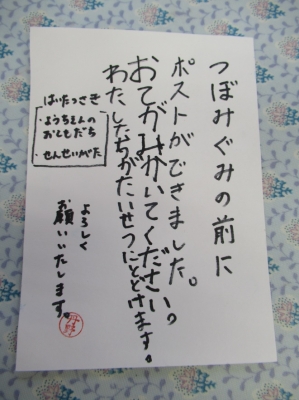 つぼみぐみの前に
ポストができました。
おてがみかいてください。
わたしたちがたいせつにとどけます。
はいたつさき
・ようちえんの
おともだち
・せんせいがた
よろしく
お願いいたします。